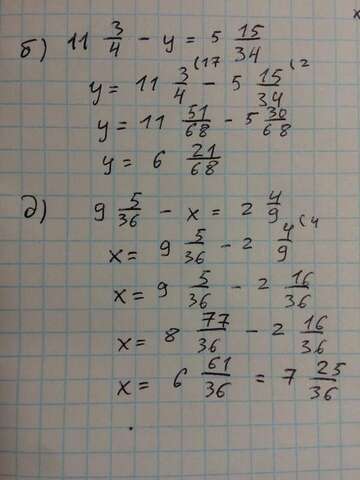 б) 11 3/4 - y = 5 15/34
y = 11 3/4 (17 - 5 15/34 (2
y = 11 51/68 - 5 30/68
y = 6 21/68
д) 9 5/36 - x = 2 4/9
x = 9 5/36 - 2 4/9 (4
x = 9 5/36 - 2 16/36
x = 8 77/36 - 2 16/36
x = 6 61/36 = 7 25/36